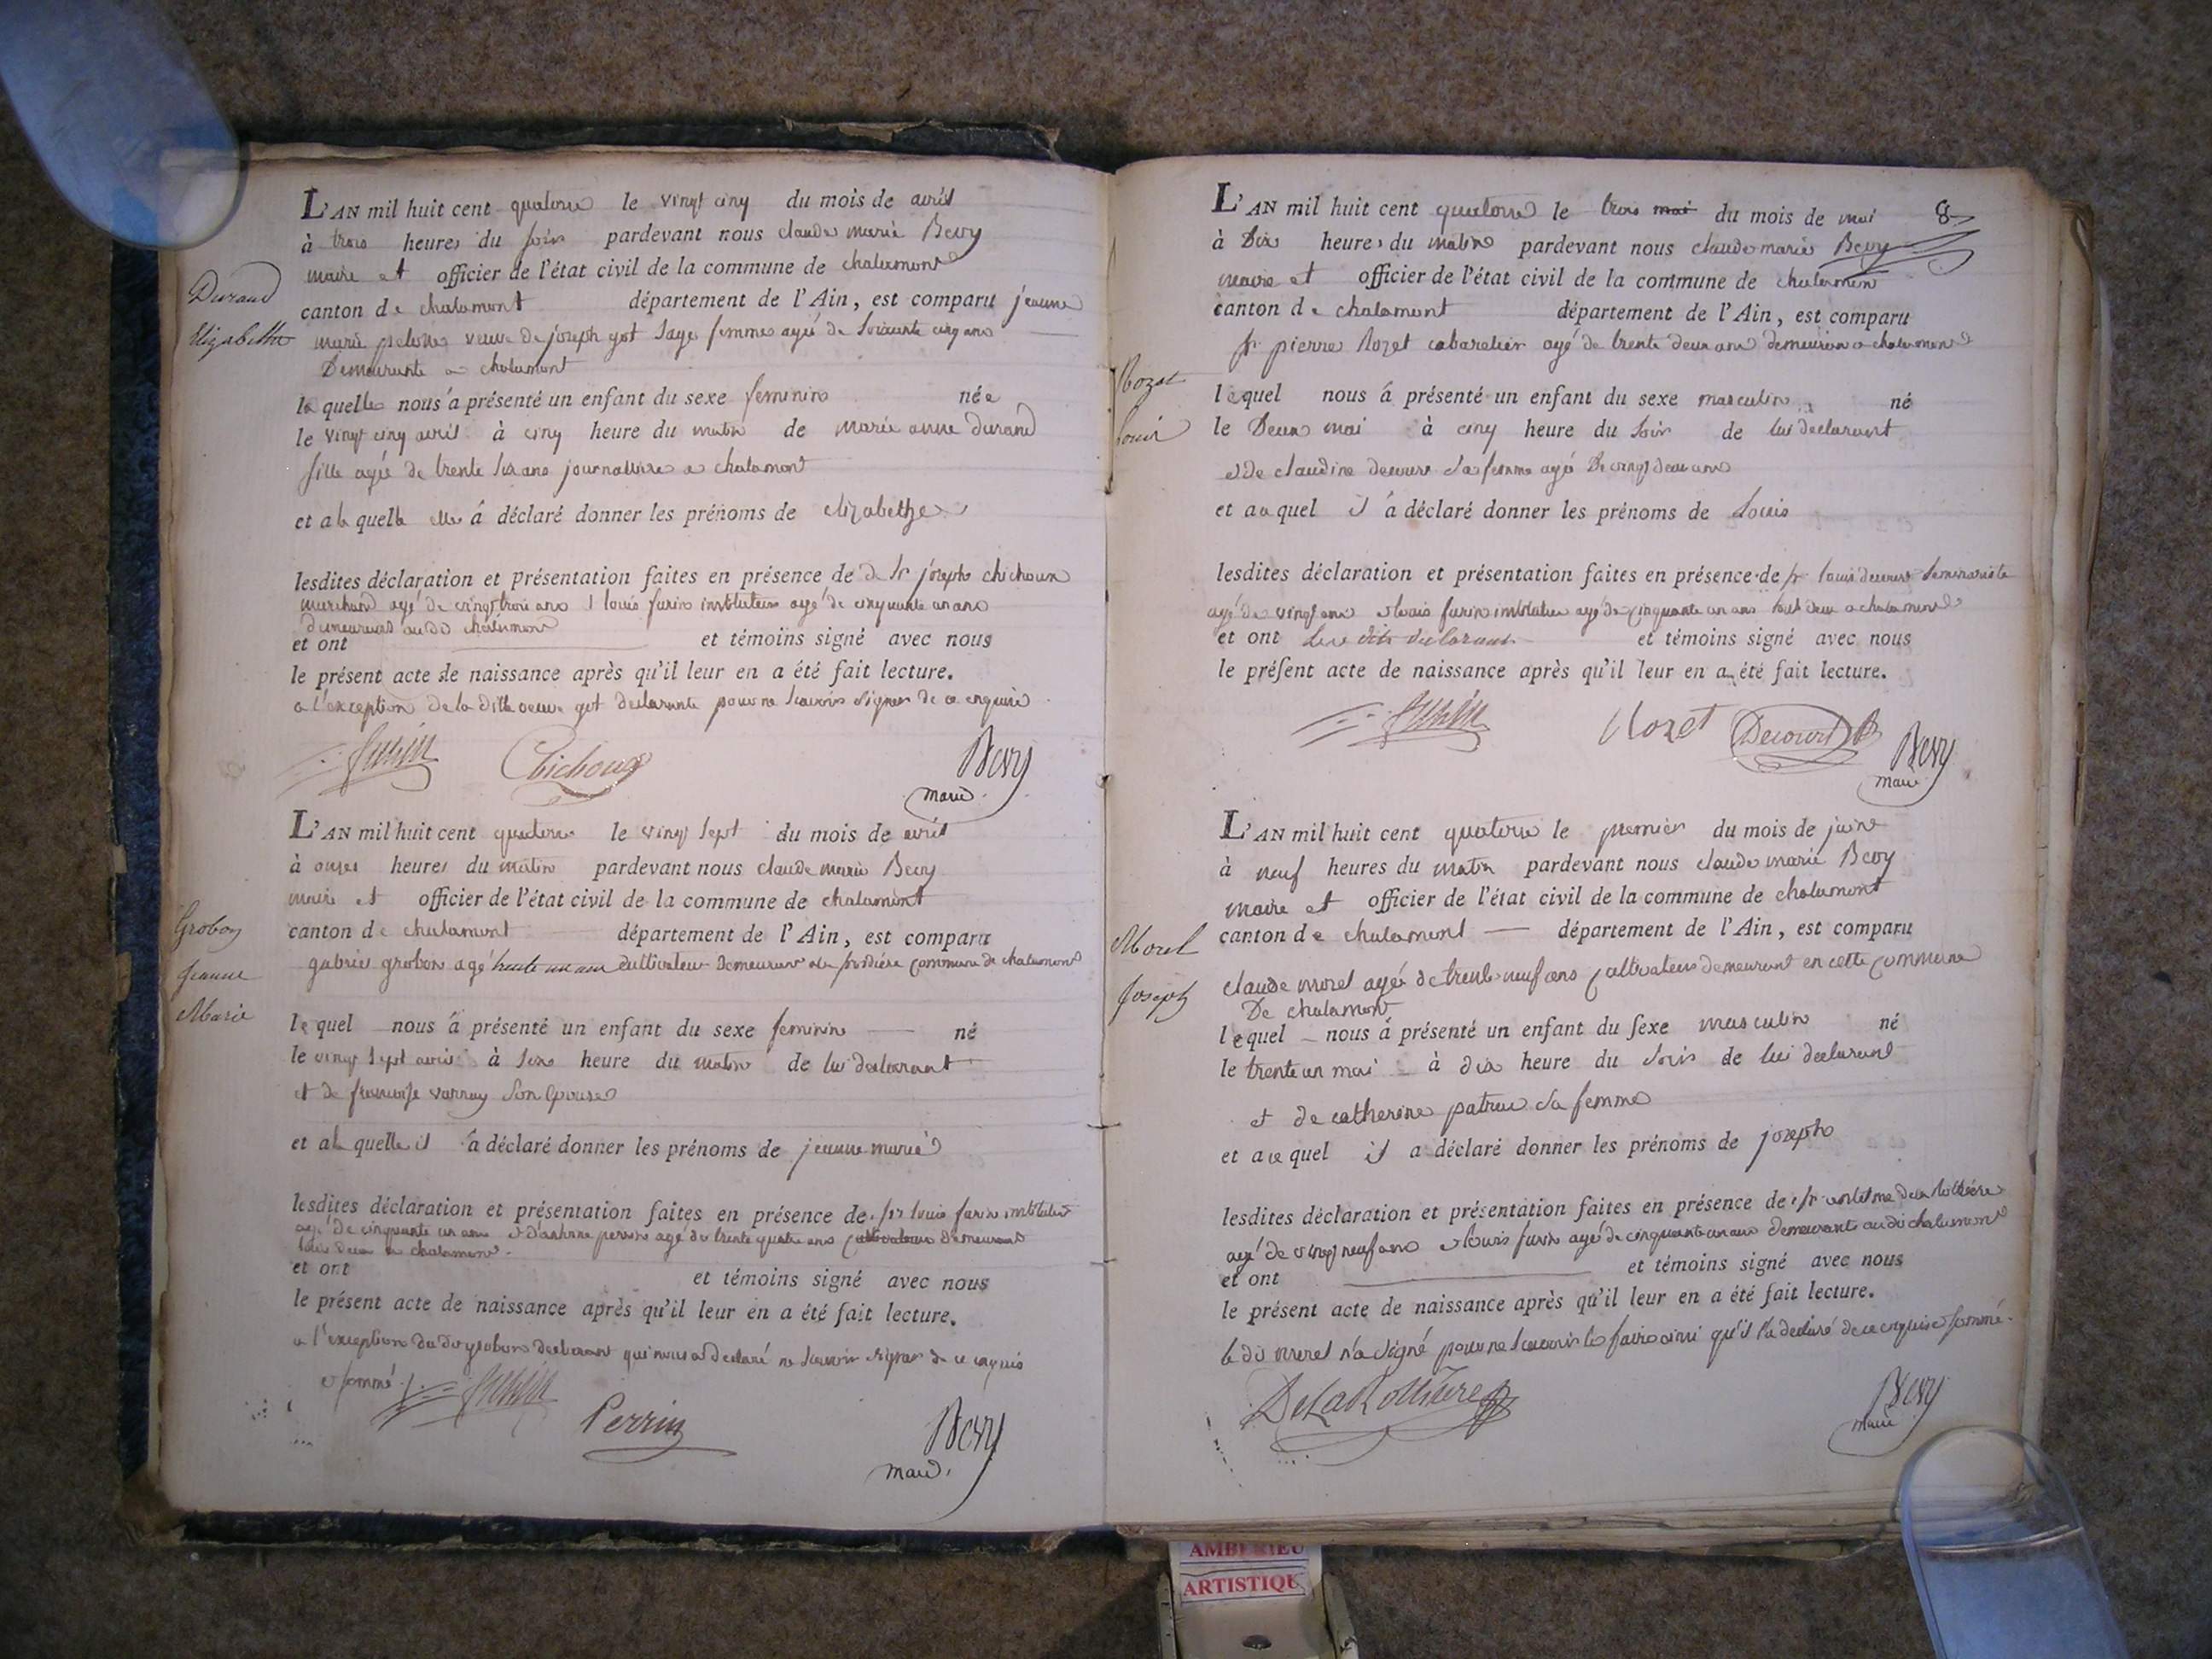 L'AN mil huit cent quatorze le vingt cinq du mois de avril
à trois heures du soir pardevant nous claude marie Bevy
maire et officier de l'état civil de la commune de chalamont
Durand
canton de chalamont département de l'Ain, est comparu jeanne
Elizabethe
marie pelosse veuve de joseph got sage femme agée de soixante cinq ans
Demeurante a chalamont
laquelle nous à présenté un enfant du sexe feminin née
le vingt cinq avril à cinq heure du matin de marie anne durand
fille agée de trente six ans journalliere a chalamont
et a la quelle elle à déclaré donner les prénoms de elizabethe
lesdites déclaration et présentation faites en présence de d. sr joseph chichoux
marchand agé de vingt trois ans & louis furin instituteur agé de cinquante un ans
demeurans au dit chalamont
et ont et témoins signé avec nous
le présent acte de naissance après qu'il leur en a été fait lecture.
a l'exception de la ditte veuve got declarante pour ne scavoir signer de ce enquise
furin Chichoux Bevy
maire
L'AN mil huit cent quatorze le vingt sept du mois de avril
à onze heures du matin pardevant nous claude marie Bevy
maire et officier de l'état civil de la commune de chalamont
Grobon
Jeanne
Marie
canton de chalamont département de l'Ain, est comparu
gabriel grobon agé trente un ans cultivateur demeurant commune de chalamont
lequel nous à présenté un enfant du sexe feminin né
le vingt sept avril à six heure du matin de lui declarant
et de francoise varray son epouse
et a la quelle il à déclaré donner les prénoms de jeanne marie
lesdites déclaration et présentation faites en présence de sr louis furin instituteur
agé de cinquante un ans & d'antoine perrin agé de trente quatre ans cultivateur demeurant
tous deux a chalamont
et ont et témoins signé avec nous
le présent acte de naissance après qu'il leur en a été fait lecture.
a l'exception du dit grobon declarant qui nous a declaré ne scavoir signer de ce enquis
& sommé
furin Perrin Bevy
maire
8
L'AN mil huit cent quatorze le trois mai du mois de mai
à Dix heures du matin pardevant nous claude marie Bevy
maire et officier de l'état civil de la commune de chalamont
canton de chalamont département de l'Ain, est comparu
sr pierre Rozet cabaretier agé de trente deux ans demeurant a chalamont
Rozet
Louis
lequel nous à présenté un enfant du sexe masculin né
le Deux mai à cinq heure du soir de lui declarant
et de claudine decourt sa femme agée De vingt deux ans
et auquel il à déclaré donner les prénoms de Louis
lesdites déclaration et présentation faites en présence de sr louis decourt seminariste
agé de vingt ans & louis furin instituteur agé de cinquante un ans tout deux a chalamont
et ont declarant et témoins signé avec nous
le présent acte de naissance après qu'il leur en a été fait lecture.
furin Rozet Decourt Bevy
maire
L'AN mil huit cent quatorze le premier du mois de juin
à neuf heures du matin pardevant nous claude marie Bevy
maire et officier de l'état civil de la commune de chalamont
Morel
Joseph
canton de chalamont département de l'Ain, est comparu
claude morel agé de trente neuf ans cultivateur demeurant en cette commune
De chalamont
lequel nous à présenté un enfant du sexe masculin né
le trente un mai à dix heure du soir de lui declarant
et de catherine patru sa femme
et auquel il a déclaré donner les prénoms de joseph
lesdites déclaration et présentation faites en présence de sr de la Rolliere
agé de vingt neuf ans & louis furin agé de cinquante un ans demeurants au dit chalamont
et ont et témoins signé avec nous
le présent acte de naissance après qu'il leur en a été fait lecture.
le dit morel n'a signé pour ne scavoir le faire ainsi qu'il l'a declaré de ce enquis & sommé.
DeLaRolliere Bevy
maire
AMBERIEU
ARTISTIQUE